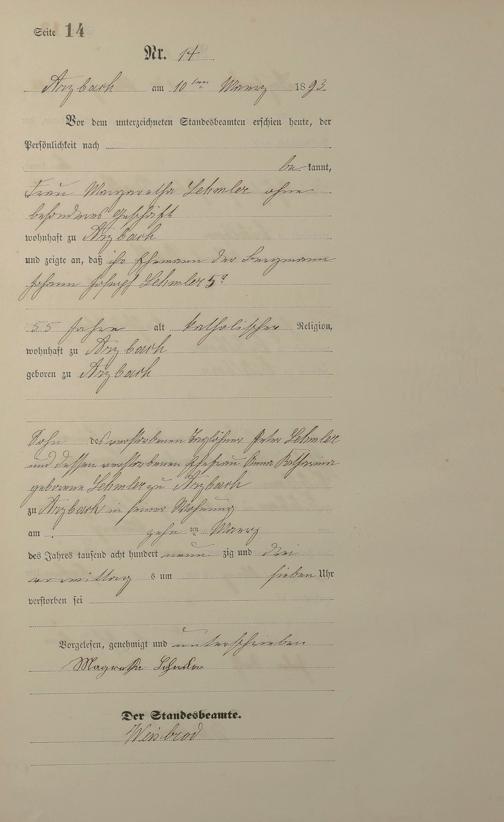 Seite 14
Nr. 14
Arzbach am 10ten Maerz 1893
Vor dem unterzeichneten Standesbeamten erschien heute, der
Persönlichkeit nach
bekannt,
Frau Margaretha Lehmler ohne
besonderes Geschäft
wohnhaft zu Arzbach
und zeigte an, daß ihr Ehemann der Bergmann
Johann Joseph Lehmler
55 Jahre alt katholischer Religion,
wohnhaft zu Arzbach
geboren zu Arzbach
Sohn des verstorbenen Taglöhner Peter Lehmler
und dessen verstorbenen Ehefrau Anna Katharina
geborene Lehmler zu Arzbach
zu Arzbach in seiner Wohnung
am zehnten Maerz
des Jahres tausend acht hundert neunzig und drei
vormittags um sieben Uhr
verstorben sei
Vorgelesen, genehmigt und unterschrieben
Der Standesbeamte.